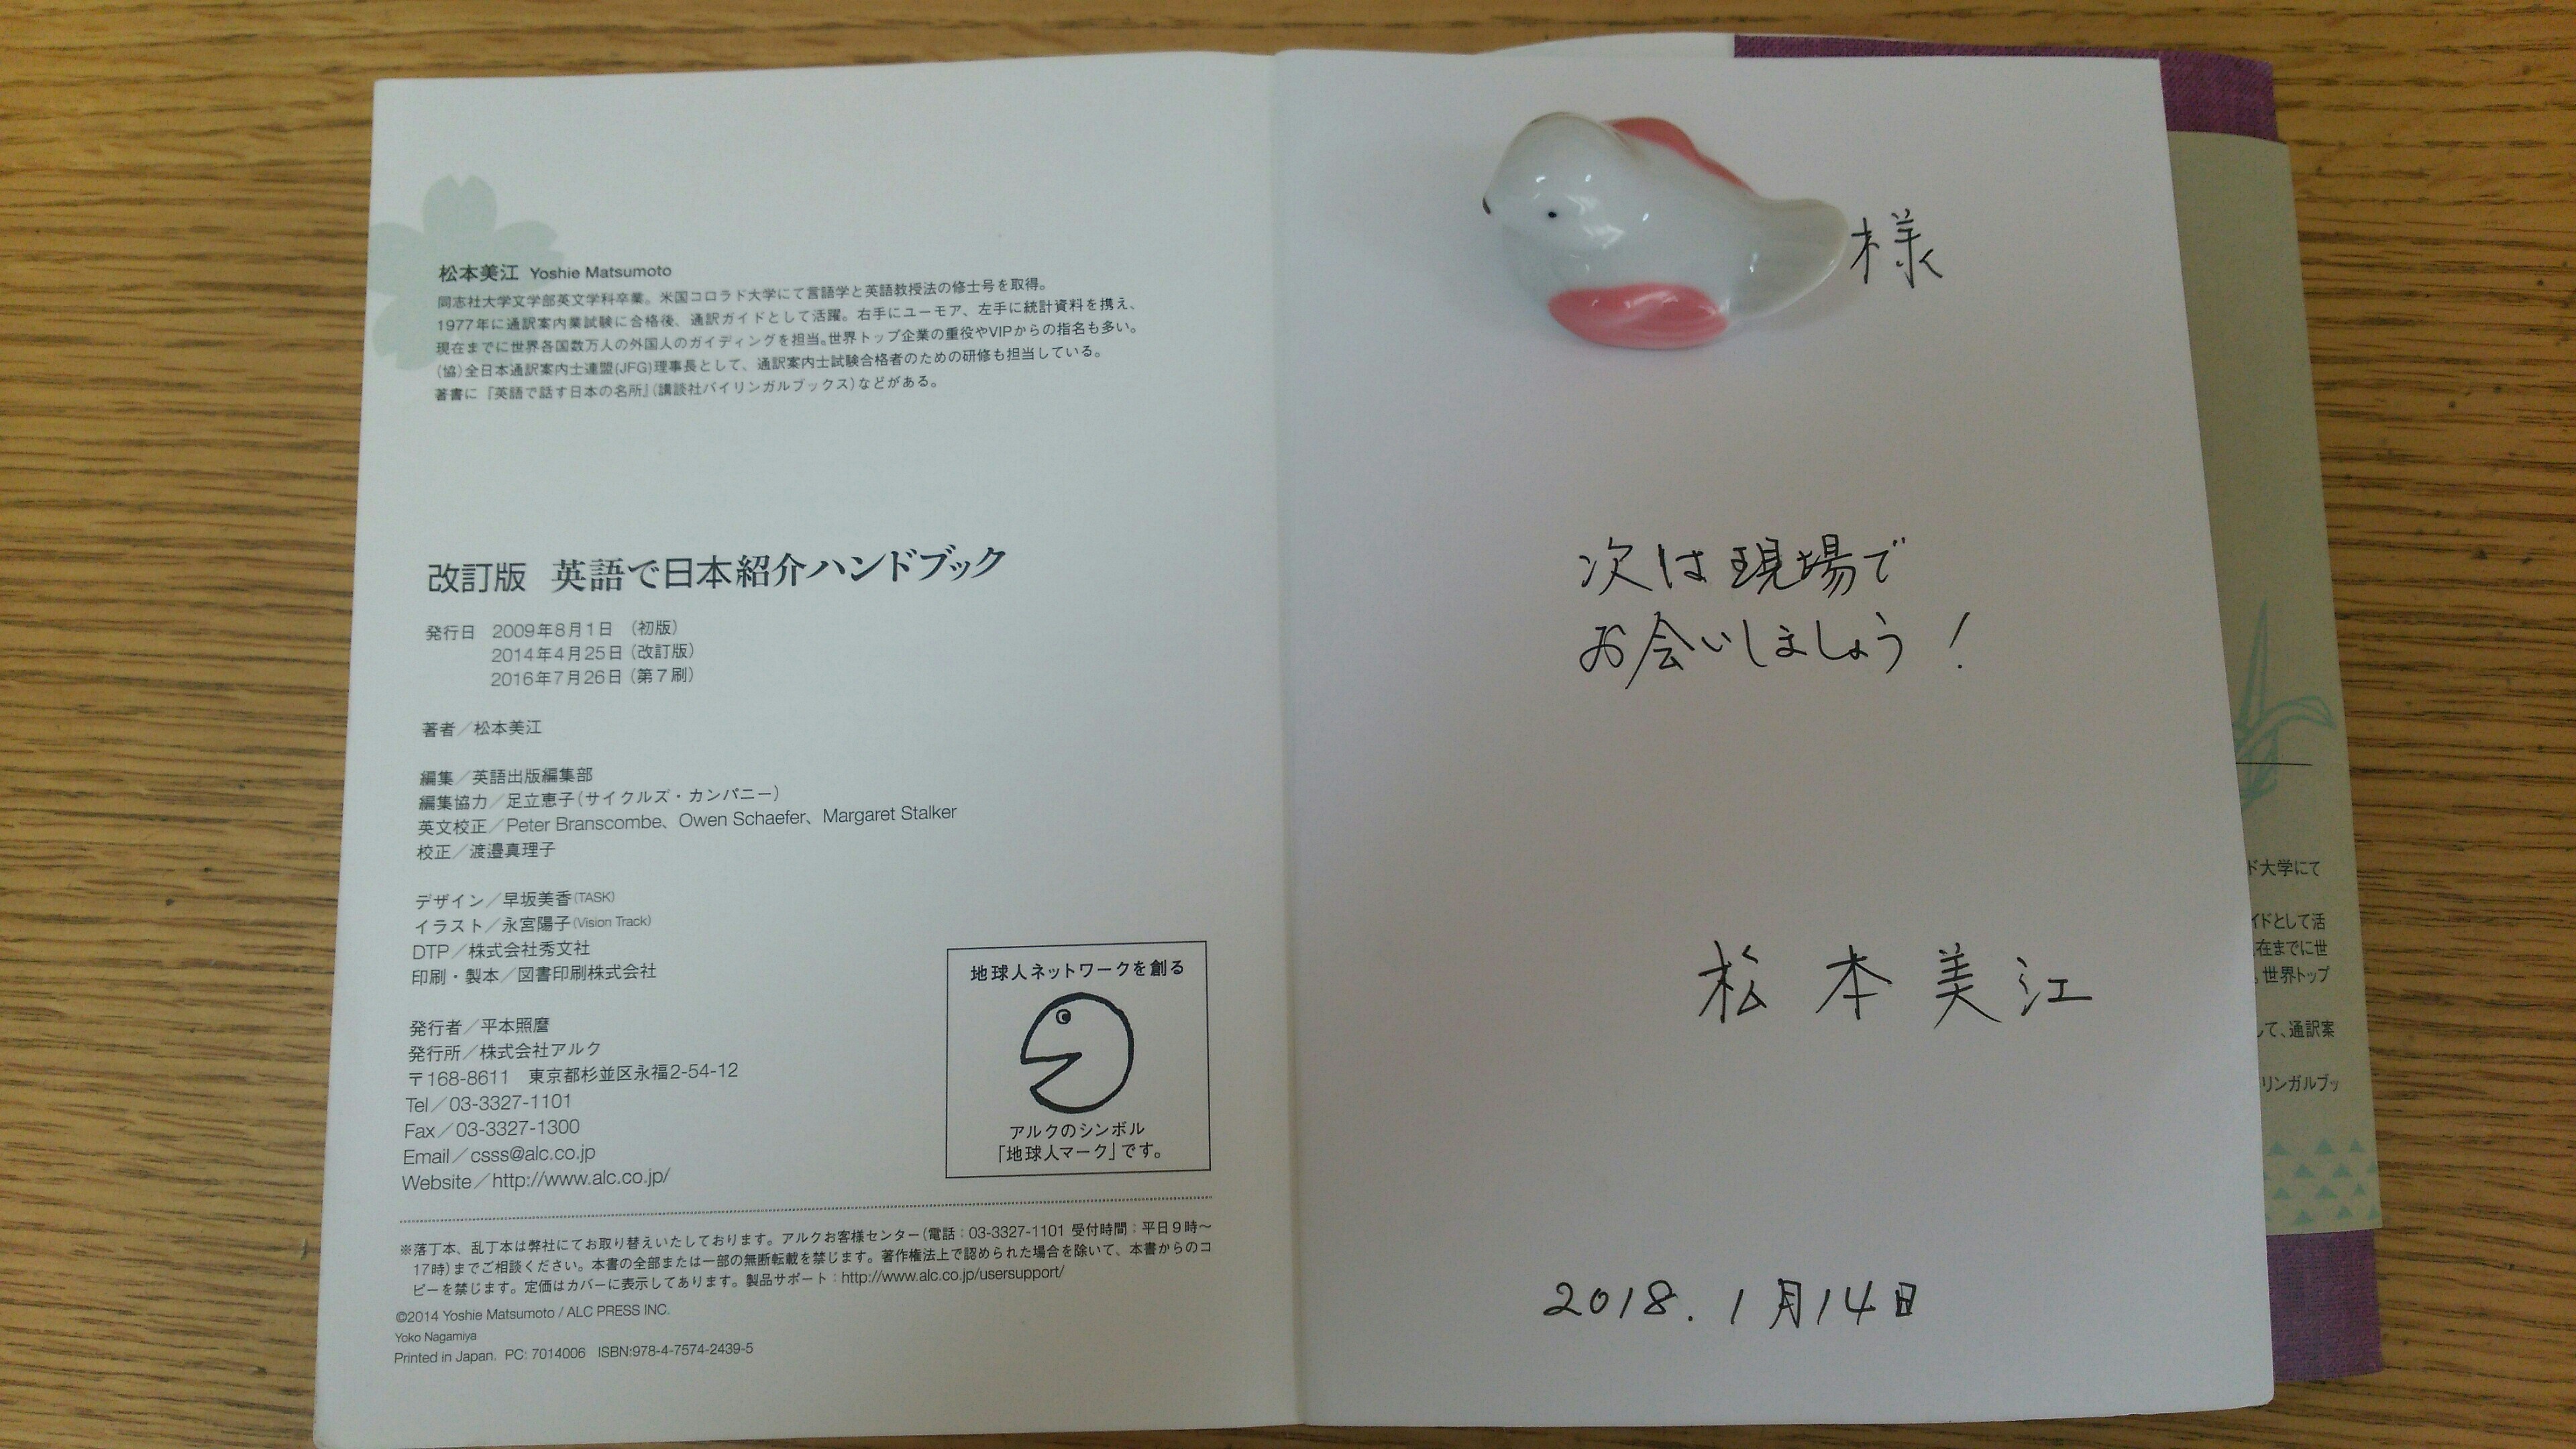 松本美江 Yoshie Matsumoto
同志社大学文学部英文学科卒業。米国コロラド大学にて言語学と英語教授法の修士号を取得。
1977年に通訳案内業試験に合格後、通訳ガイドとして活躍。右手にユーモア、左手に統計資料を携え、
現在までに世界各国数万人の外国人のガイディングを担当。世界トップ企業の重役やVIPからの指名も多い。
(協)全日本通訳案内士連盟(JFG)理事長として、通訳案内士試験合格者のための研修も担当している。
著書に『英語で話す日本の名所』(講談社バイリンガルブックス)などがある。
改訂版 英語で日本紹介ハンドブック
発行日 2009年8月1日 (初版)
2014年4月25日 (改訂版)
2016年7月26日 (第7刷)
著者／松本美江
編集／英語出版編集部
編集協力／足立恵子(サイクルズ・カンパニー)
英文校正／Peter Branscombe、Owen Schaefer、Margaret Stalker
校正／渡邉真理子
デザイン／早坂美香(TASK)
イラスト／永宮陽子(Vision Track)
DTP／株式会社秀文社
印刷・製本／図書印刷株式会社
発行者／平本照麿
発行所／株式会社アルク
〒168-8611 東京都杉並区永福2-54-12
Tel／03-3327-1101
Fax／03-3327-1300
Email／csss@alc.co.jp
Website／http://www.alc.co.jp/
地球人ネットワークを創る
アルクのシンボル
「地球人マーク」です。
※落丁本、乱丁本は弊社にてお取り替えいたしております。アルクお客様センター(電話：03-3327-1101 受付時間：平日9時〜
17時)までご相談ください。本書の全部または一部の無断転載を禁じます。著作権法上で認められた場合を除いて、本書からのコ
ピーを禁じます。定価はカバーに表示してあります。製品サポート：http://www.alc.co.jp/usersupport/
©2014 Yoshie Matsumoto / ALC PRESS INC.
Yoko Nagamiya
Printed in Japan. PC: 7014006 ISBN:978-4-7574-2439-5
様
次は現場で
お会いしましょう！
松本美江
2018.1月14日
ド大学にて
イドとして活
在までに世
。世界トップ
して、通訳案
リンガルブッ